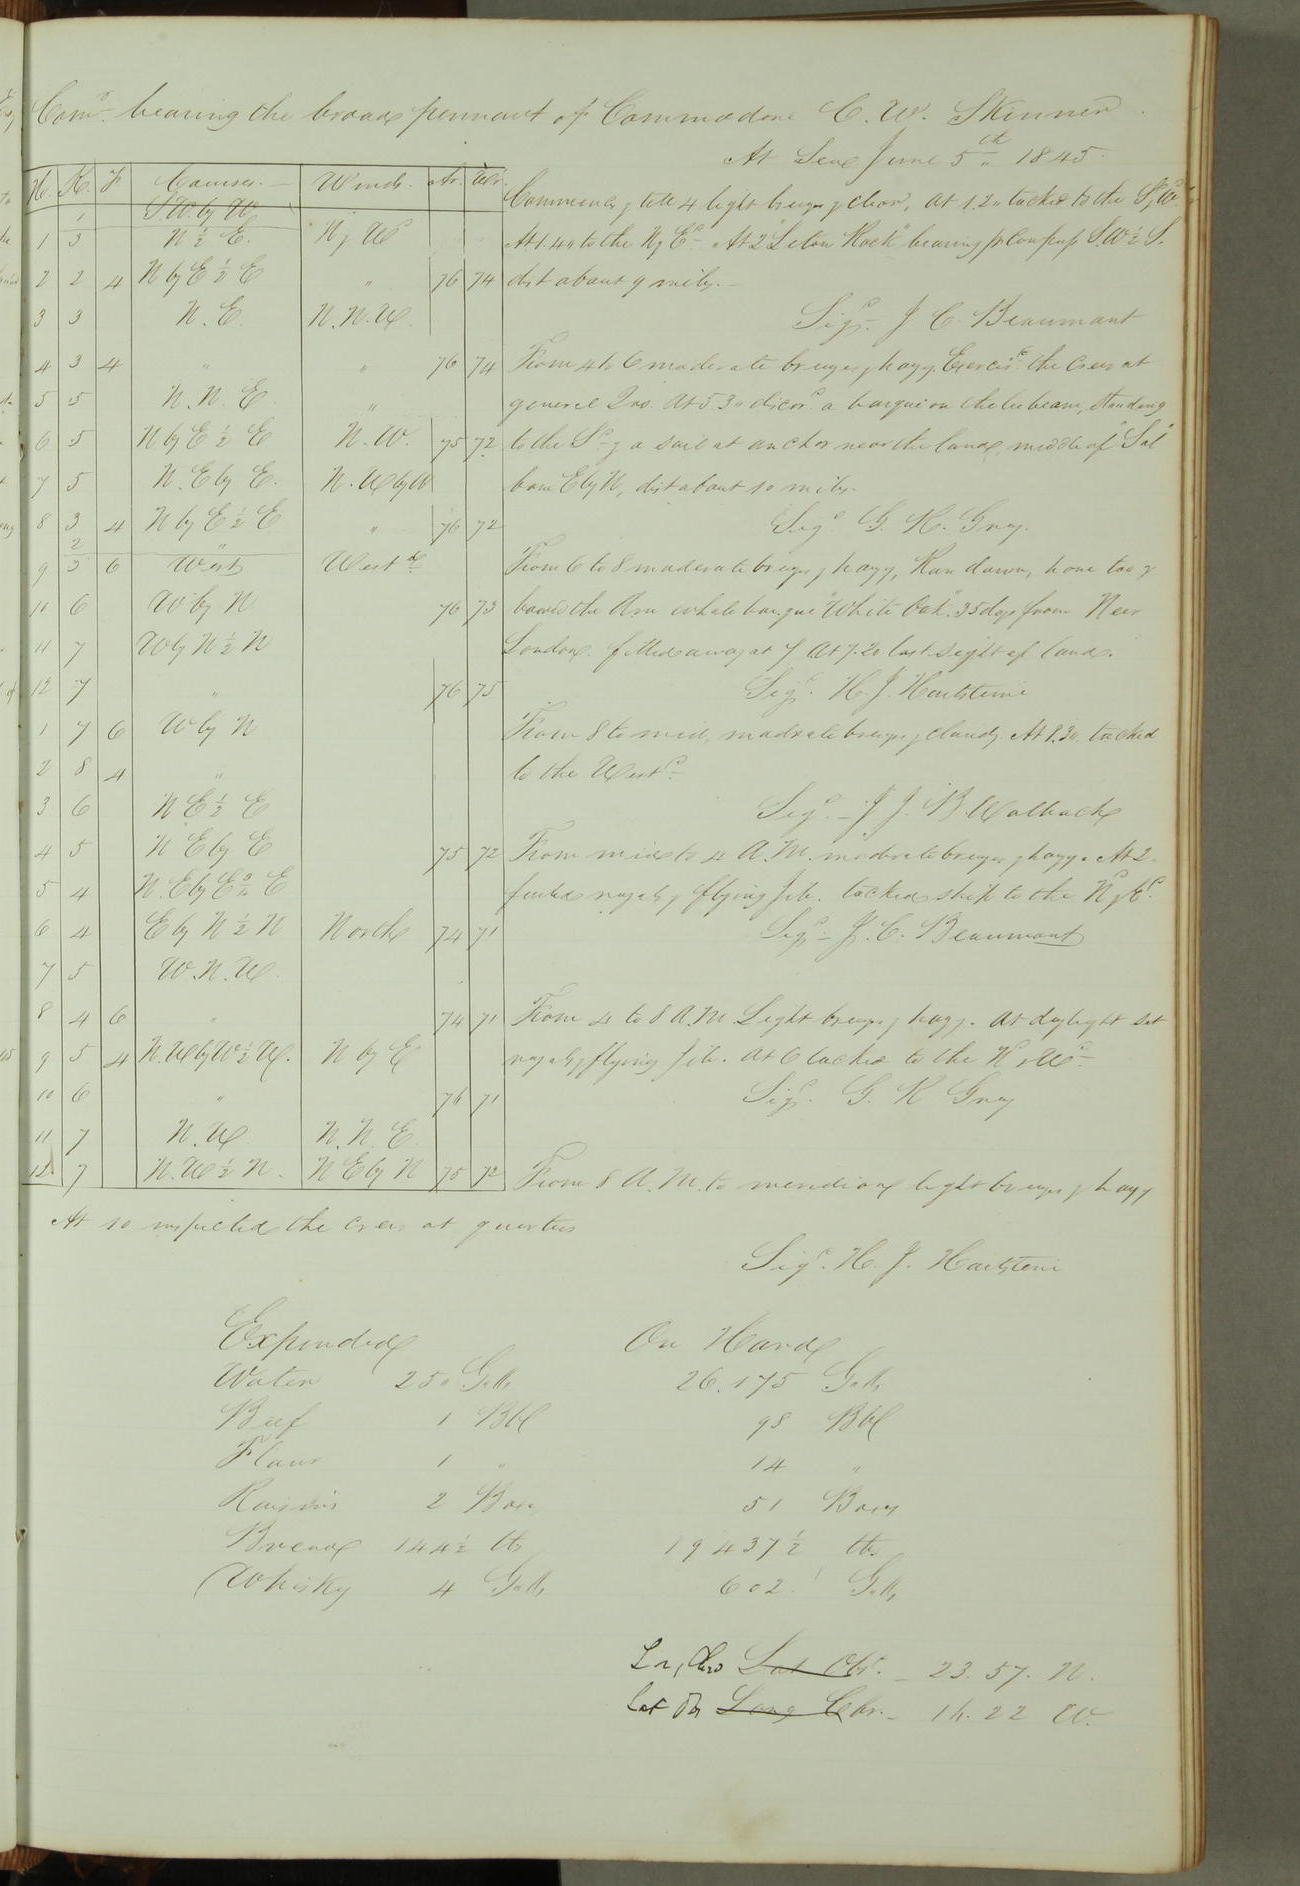 Comr. bearing the broad pennant of Commodore C. W. Skinner.
At Sea June 5th 1845.
H. K. F Courses. Winds. Air. Wtr.
1 S W. by W
1 3 N ½ E. N & W
2 2 4 N by E ½ E " 76 74
3 3 N. E. N. N. W.
4 3 4 " " 76 74
5 5 N. N. E. "
6 5 N by E ½ E N. W. 75 72
7 5 N. E by E. N. W by W
8 3 4 N by E ½ E " 76 72
2 "
9 3 6 West Westd
10 6 W by N 76 73
11 7 W by N ½ N
12 7 " 76 75
1 7 6 W by N
2 8 4 "
3 6 N E ½ E
4 5 N E by E 75 72
5 4 N. E by E E
6 4 E by N ½ N North 74 71
7 5 W. N. W.
8 4 6 " 74 71
9 5 4 N. W by W ½ W. N by E
10 6 " 76 71
11 7 N. W N. N. E.
12 7 N. W ½ N. N E by N 75 72
Commences & till 4 light breezes & clear, at 1.20 tacked to the Sd & Wd
At 1.40 to the N & Ed At 2 "Leton Rock" bearing pr compass S. W ½ S.
dist about 9 miles.
Sigd J. C. Beaumont
From 4 to 6 moderate breezes & hazy. Exercisd the crew at
general Qrs. At 5.30 discovd a barque on the lee beam, standing
to the Sd & a sail at anchor near the land, middle of "Sal"
bore E by N, dist about 10 miles.
Sigd G. H. Gray.
From 6 to 8 moderate breezes & hazy, Run down, hove too &
boarded the Am whale barque "White Oak" 35 days from New
London. filled away at 7 At 7.20 lost sight of land.
Sigd. H. J. Hartstene
From 8 to mid, moderate breezes & cloudy. At 8.30 tacked
to the Westd
Sigd J J. B. Walbach
From mid to 4 A. M. moderate breezes & hazy. At 2
furled royals & flying Jib. tacked ship to the Nd & Ed.
Sigd J. C. Beaumont
From 4 to 8 A. M Light breezes & hazy. At daylight set
royals & flying Jib. At 6 tacked to the N & Wd
Sigd. G. H Gray
From 8 A. M. to meridian light breezes & hazy
At 10 inspected the crew at quarters
Sigd. H. J. Hartstene
Expended On Hand
Water 250 Galls 26.175 Galls
Beef 1 Bbl 98 Bbl
Flour 1 " 14 "
Raisins 2 Boxes 51 Boxes
Bread 144½ lbs 19437½ lbs.
Whisky 4 Galls 602. Galls
Lat Obs. 23. 57. N.
Long Chr. 22 W.